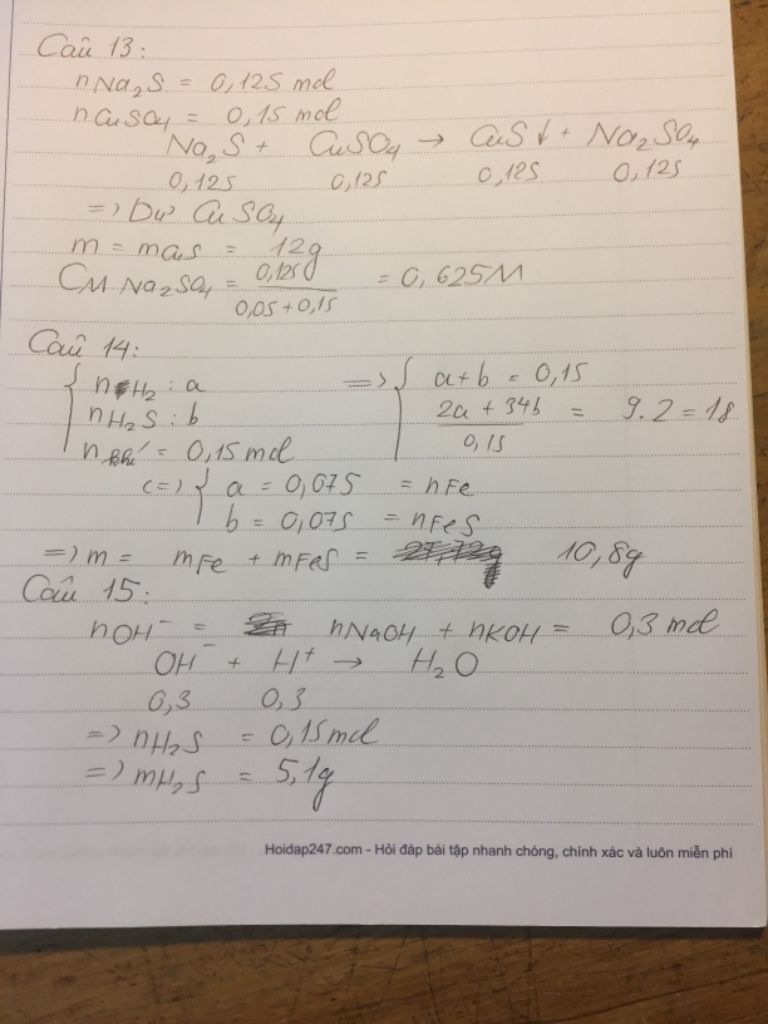 Câu 13:
nNa₂S = 0,125 mol
nCuSO₄ = 0,15 mol
Na₂S + CuSO₄ → CuS↓ + Na₂SO₄
0,125 0,125 0,125 0,125
=> Dư CuSO₄
m = mCuS = 12g
CM Na₂SO₄ = 0,125 / 0,05 + 0,15 = 0,625M
Câu 14:
{ nH₂ : a => { a + b = 0,15
nH₂S : b 2a + 34b / 0,15 = 9.2 = 18
nkhí = 0,15 mol
<=> { a = 0,075 = nFe
b = 0,075 = nFeS
=> m = mFe + mFeS = 10,8g
Câu 15:
nOH⁻ = nNaOH + nKOH = 0,3 mol
OH⁻ + H⁺ → H₂O
0,3 0,3
=> nH₂S = 0,15 mol
=> mH₂S = 5,1g
Hoidap247.com - Hỏi đáp bài tập nhanh chóng, chính xác và luôn miễn phí